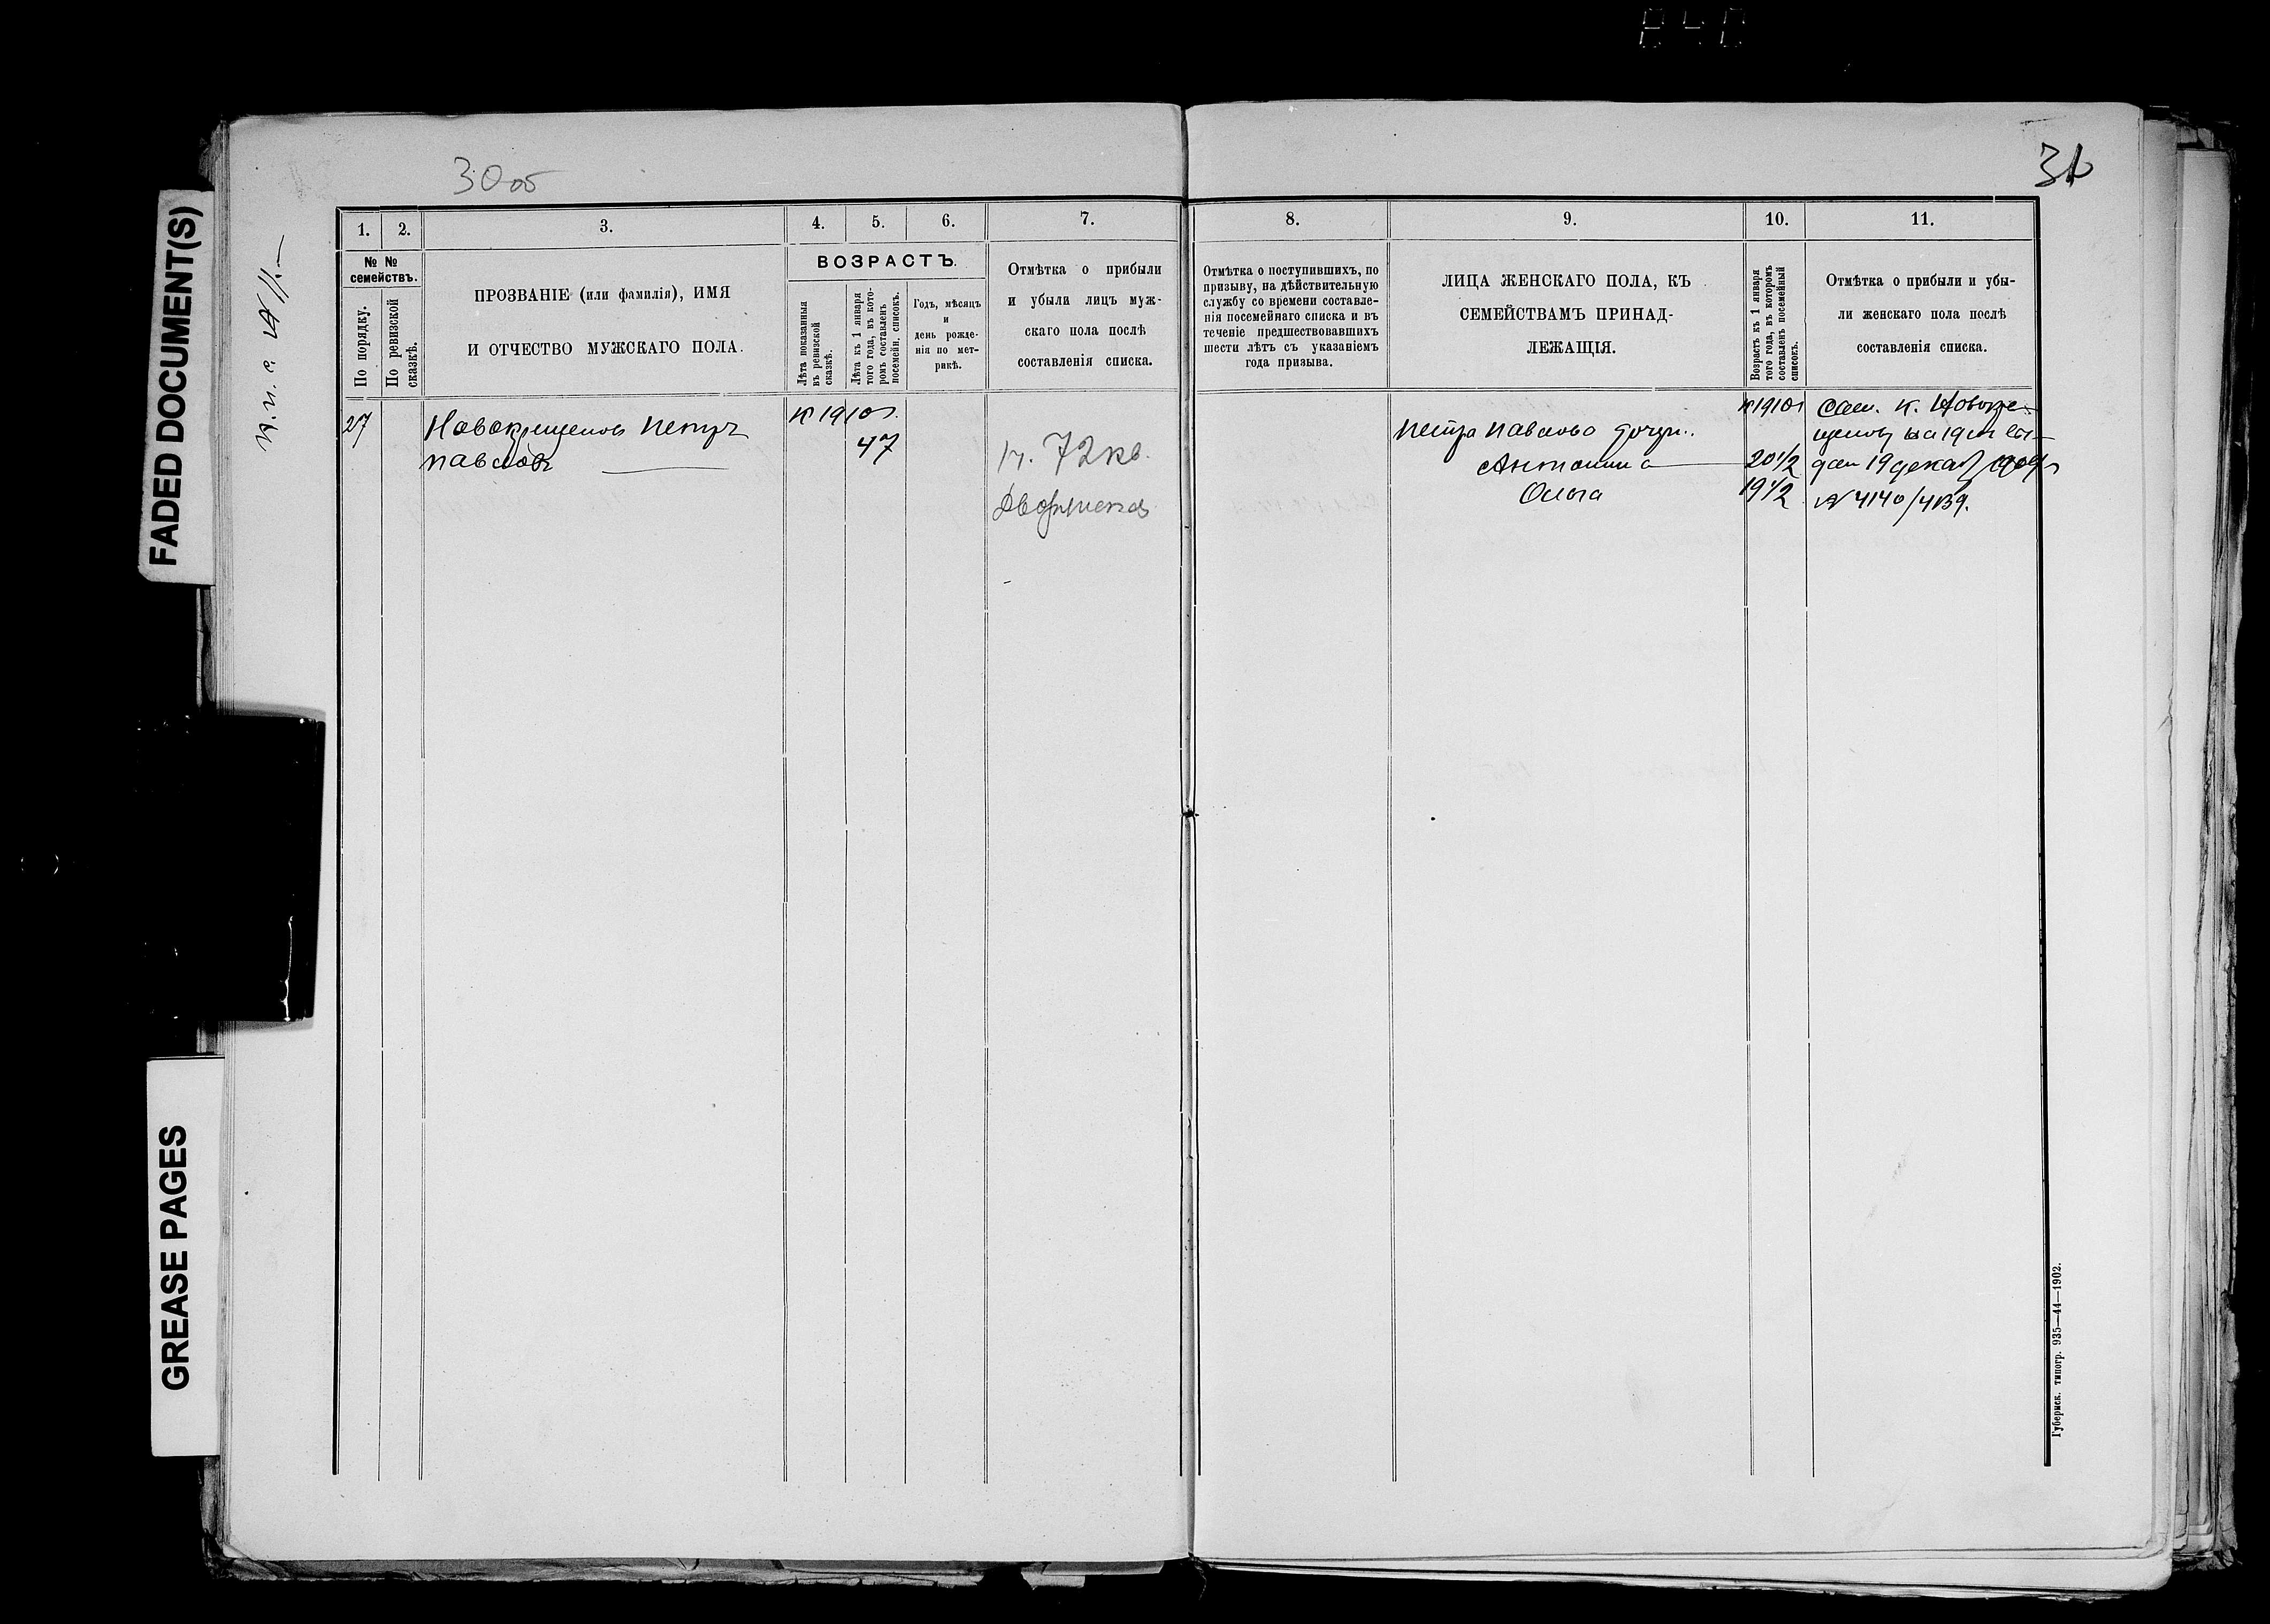 FADED DOCUMENT(S)
GREASE PAGES
30об
31
1.
2.
3.
4.
5.
6.
7.
№ №
семействъ.
По порядку.
По ревизской
сказкѣ.
ПРОЗВАНІЕ (или фамилія), ИМЯ
И ОТЧЕСТВО МУЖСКАГО ПОЛА.
ВОЗРАСТЪ.
Лѣта показанныя
въ ревизской
сказкѣ.
Лѣта къ 1 января
того года, въ кото-
ромъ составленъ
посемейн. списокъ.
Годъ, мѣсяцъ
и
день рожде-
нія по мет-
рикѣ.
Отмѣтка о прибыли
и убыли лицъ муж-
скаго пола послѣ
составленія списка.
27
Новокрещеновъ Петръ
Павловъ
к 1910 г.
47
72 кв.
8.
9.
10.
11.
Отмѣтка о поступившихъ, по
призыву, на дѣйствительную
службу со времени составле-
нія посемейнаго списка и въ
теченіе предшествовавшихъ
шести лѣтъ съ указаніемъ
года призыва.
ЛИЦА ЖЕНСКАГО ПОЛА, КЪ
СЕМЕЙСТВАМЪ ПРИНАД-
ЛЕЖАЩІЯ.
Возрастъ къ 1 января
того года, въ которомъ
составленъ посемейный
списокъ.
Отмѣтка о прибыли и убы-
ли женскаго пола послѣ
составленія списка.
Петра Павлова дочери:
Антонина
Ольга
к 1910 г
20 1/2
19 1/2
к. Новокре-
19 декаб 1909 г
№ 4140/4139.
Губернск. типогр. 935—44—1902.